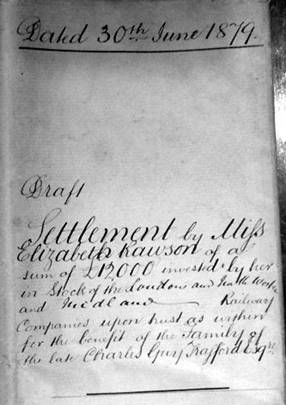 Dated 30th June 1879.
Draft
Settlement by Miss
Elizabeth Rawson of a
sum of £12000 invested by her
in Stock of the London and North Western
and Midland Railway
Companies upon trust as within
for the benefit of the Family of
the late Charles Guy Trafford Esqre.